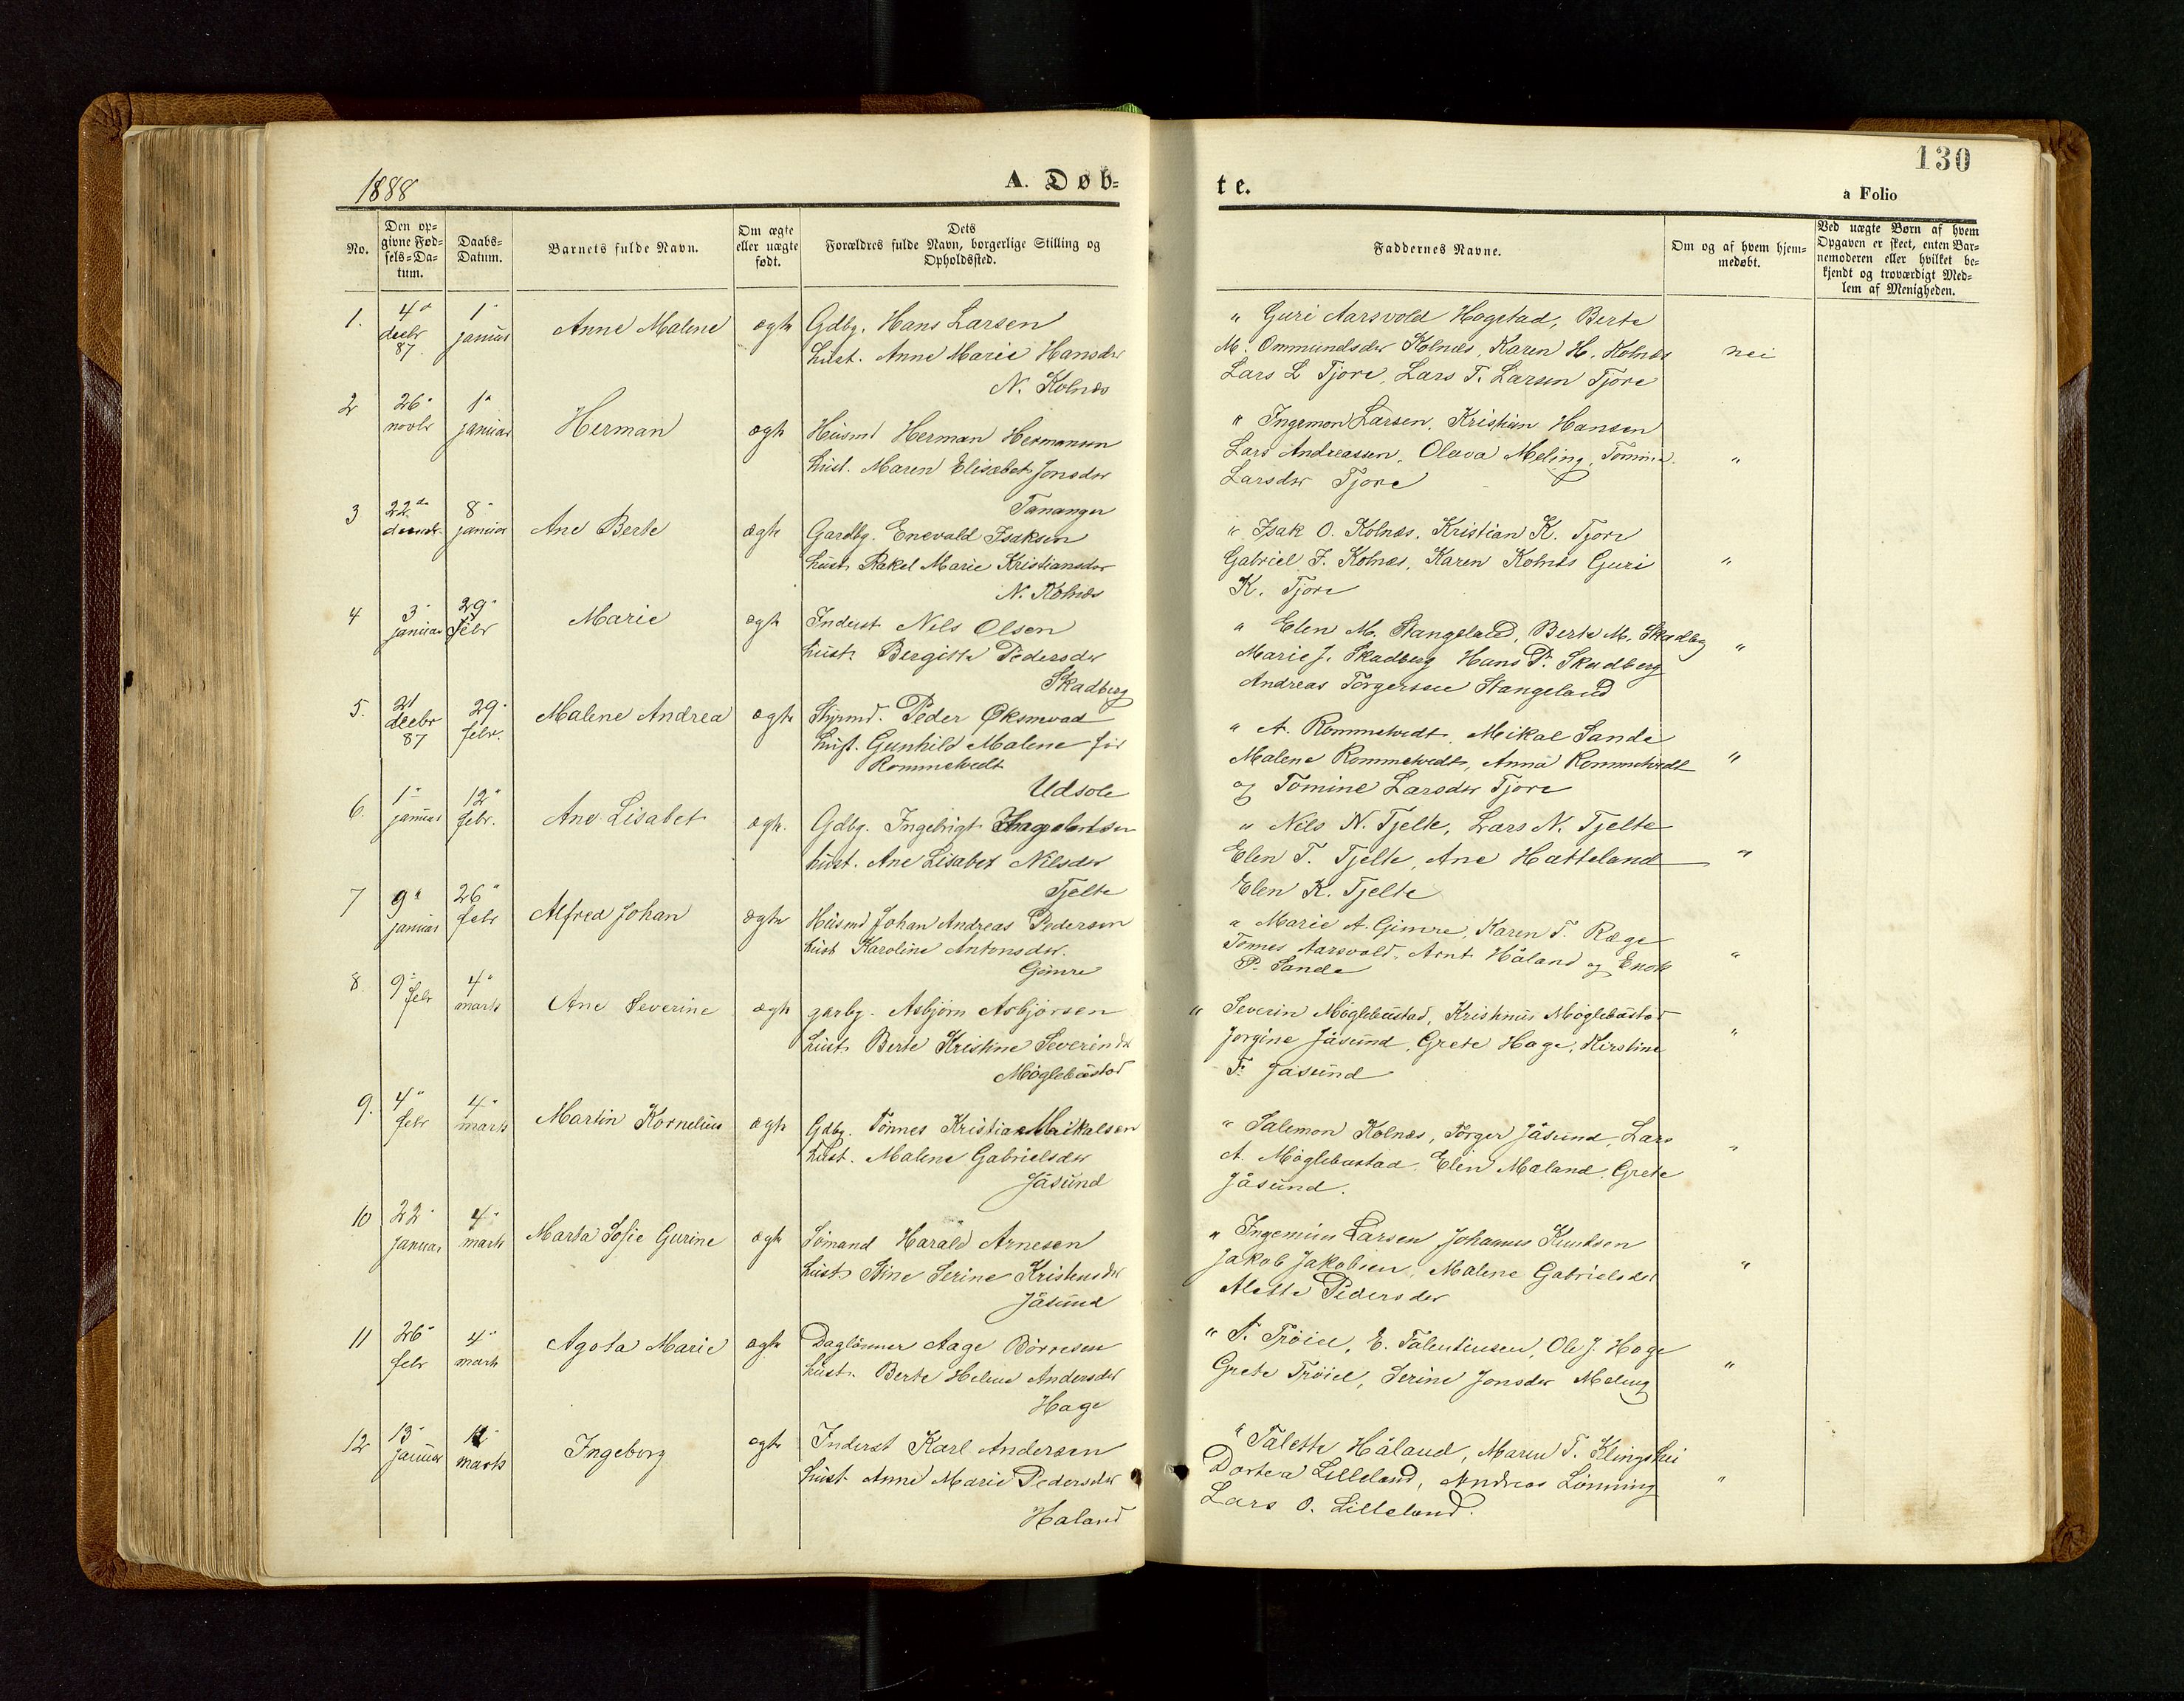 1888
A. Døb-
te.
130
a Folio
No.
Den op-
givne Fød-
sels-Da-
tum.
Daabs-
Datum.
Barnets fulde Navn.
Om ægte
eller uægte
født.
Dets
Forældres fulde Navn, borgerlige Stilling og
Opholdssted.
Faddernes Navne.
Om og af hvem hjem-
medøbt.
Ved uægte Børn af hvem
Opgaven er skeet, enten Bar-
nemoderen eller hvilket be-
kjendt og troværdigt Med-
lem af Menigheden.
1. 4de decbr 87. 1" januar Anne Malene ægte Gdbg. Hans Larsen
hust. Anne Marie Hansdr
N. Kolnes
" Guri Aarsvold Hogstad, Berte
M. Ommundsdr Kolnes, Karen H. Kolnes nei
Lars L Tjore, Lars T. Larsen Tjore
2 26" novbr 1" januar Herman ægte Husmd Herman Hermansen
hust. Maren Elisabet Jonsdr
Tananger
" Ingemon Larsen, Kristian Hansen
Lars Andreassen, Oleva Meling, Tomine "
Larsdr Tjore
3 22de decmbr. 8" januar Ane Berte ægte Gardbg. Enevald Isaksen
hust. Rakel Marie Kristiansdr
N. Kolnes
" Isak O. Kolnes, Kristian K. Tjore
Gabriel F. Kolnes, Karen Kolnes Guri "
K. Tjore
4 3" januar 29" febr Marie ægte Inderst Nils Olsen
hust. Bergitte Pedersdr
Skadberg
" Elen M. Stangeland, Berte M. Skadberg
Marie J. Skadberg Hans P. Skadberg "
Andreas Torgersen Stangeland
5. 21 decbr 87 29" febr. Malene Andrea ægte Styrmd. Peder Øksnevad
hust. Gunhild Malene før
Rommetvedt
Udsole
" A. Rommetvedt, Mikal Sande
Malene Rommetvedt, Anna Rommetvedt "
og Tomine Larsdr Tjore
6. 1" januar 12" febr. Ane Lisabet ægte. Gdbg. Ingebrigt
hust. Ane Lisabet Nilsdr
Tjelte
" Nils N. Tjelte, Lars N. Tjelte
Elen T. Tjelte, Ane Hatteland "
Elen K. Tjelte
7 9" januar 26" febr Alfred Johan ægte Husmd Johan Andreas Pedersen
hust Karoline Antonsdr.
Gimre
" Marie A. Gimre, Karen T. Rege
Tonnes Aarsvold, Arnt Håland og Enok "
P. Sande
8. 9" febr 4" marts Ane Severine ægte garbg. Asbjørn Asbjørsen
hust. Berte Kristine Severinsdr
Møglebustad
" Severin Møglebustad, Kristinus Møglebustad
Jorgine Jåsund, Grete Hage, Kirstine "
T. Jåsund
9. 4" febr 4" marts Martin Kornelius ægte Gdbg. Tønnes Kristian Mikalsen
hust. Malene Gabrielsdr
Jåsund
" Salemon Kolnes, Torger Jåsund, Lars
A. Møglebustad, Elen Maland, Grete "
Jåsund.
10 22" januar 4" marts Marta Sofie Gurine ægte Sømand Harald Arnesen
hust. Stine Serine Kristensdr
Jåsund
" Ingemius Larsen Johannes Knudsen
Jakob Jakobsen, Malene Gabrielsdr "
Alette Pedersdr
11 26" febr 4" marts Agota Marie ægte Daglønner Aage Børresen
hust. Berte Helene Andersdr
Hage
" T. Trøiel, E. Tålentinsen, Ole J. Hage
Grete Trøiel, Serine Jonsdr Meling "
12 13" januar marts Ingeborg ægte Inderst Karl Andersen
hust. Anne Marie Pedersdr
Haland
" Talette Håland, Maren T. Klingshei
Dortea Lilleland, Andreas Lønning "
Lars O. Lilleland.